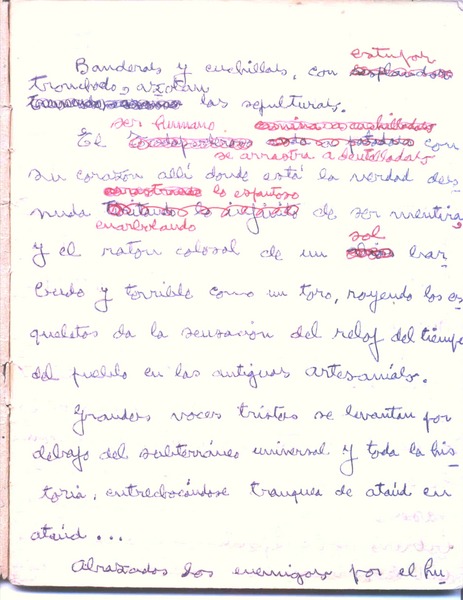 estupor
Banderas y cuchillas, con
tronchado, azotan
las sepulturas.
ser humano
El con
se arrastra a deutelladas
su corazón allí donde está la verdad des
lo espantoso
nuda de ser mentira,
enarbolando
sol
y el ratón colosal de un bra-
ceado y torrible como un toro, royendo los es
queletos da la sensación del reloj del tiempo
del pueblo en las antiguas artesanías.
Grandes voces tristes se levantan por
debajo del subterráneo universal y toda la his
toria, entrechocándose tranquea de ataúd en
ataúd...
Abrazados los enemigos por el hu